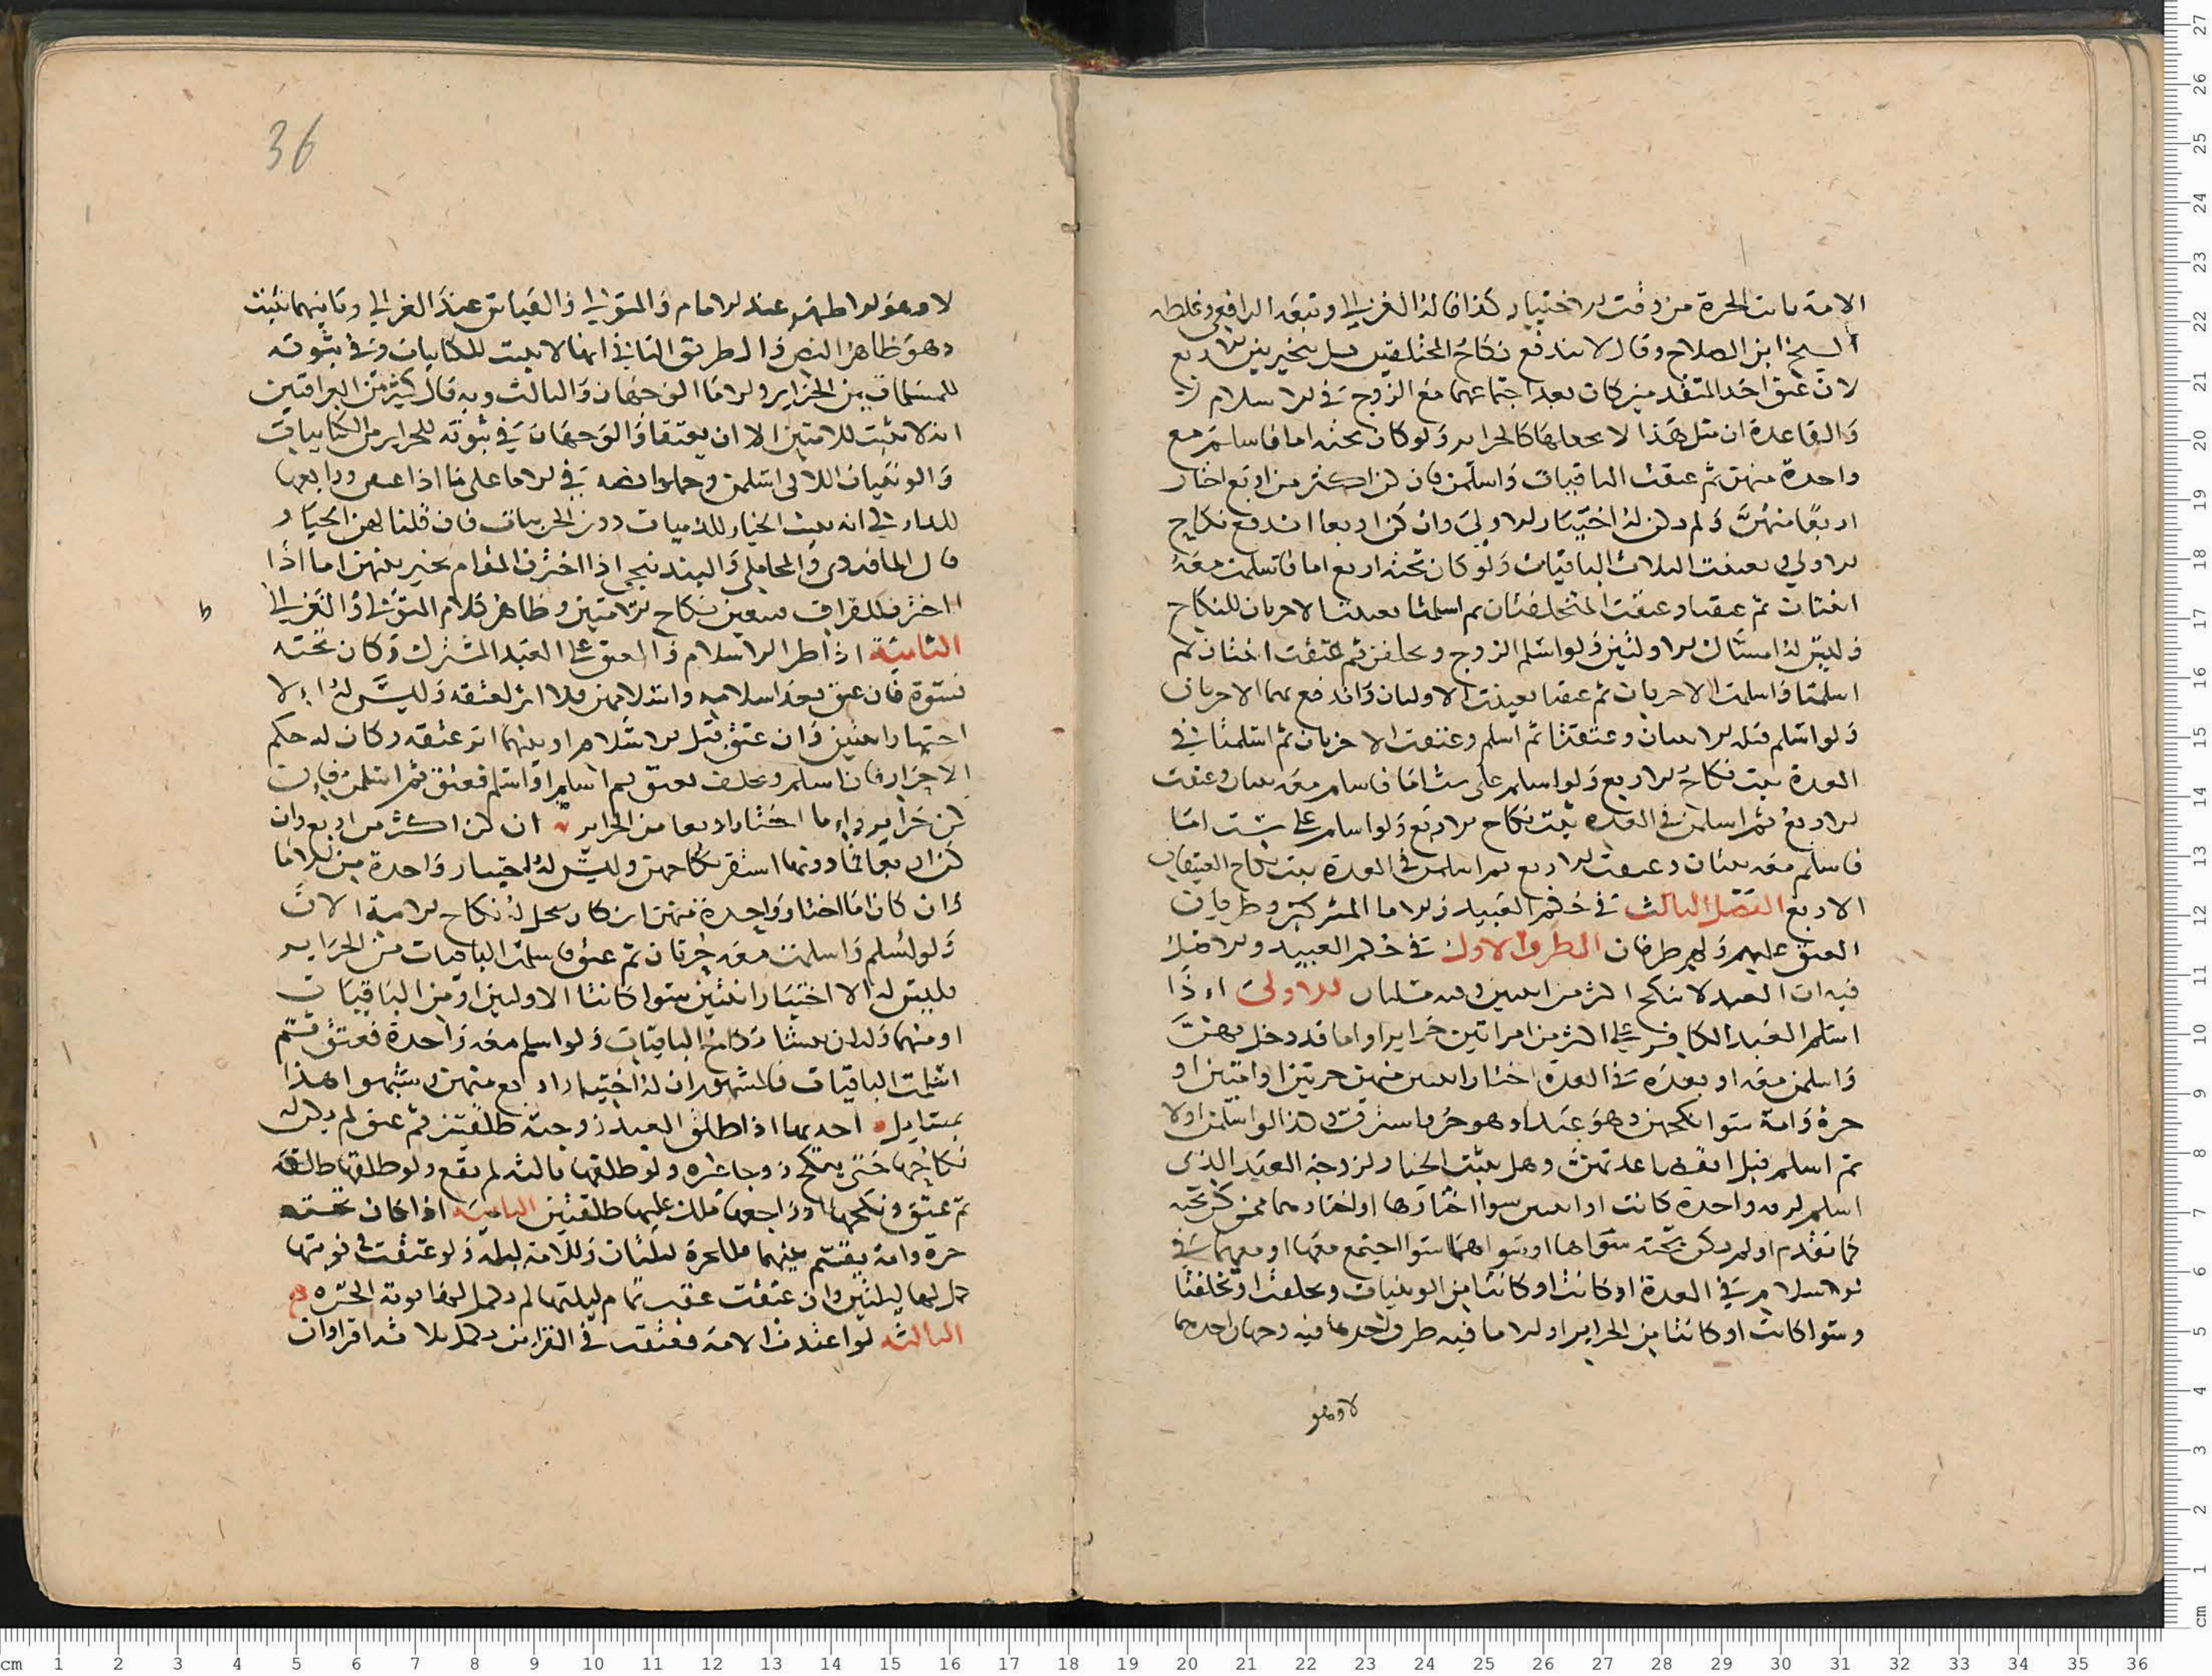 الامة بانت الحرة من وقت الاختيار كذا قاله الغزالي وتبعه الرافعي وغلطه
الشيخ ابن الصلاح وقال لا يندفع نكاح المتخلفتين بل يتخير بين الاربع
لان عتق احد المتقدمتين كان بعد اجتماعهما مع الزوج في الاسلام
والقاعدة ان مثل هذا لا يجعلها كالحراير ولو كان تحته اما فاسلم مع
واحدة منهن ثم عتقت الباقيات واسلمن فان كن اكثر من اربع اختار
اربعا منهن ولم يكن له اختيار الاولى وان كن اربعا اندفع نكاح
الاولى بعتقت الثلاث الباقيات ولو كان تحته اربع اما فاسلمت معه
اثنتان ثم عتقتا وعتقت المتخلفتان ثم اسلمتا تعينتا الاخريان للنكاح
وليس له امساك الاولتين ولو اسلم الزوج وتخلفن ثم عتقت اثنتان ثم
اسلمتا واسلمت الاخريان ثم عتقتا تعينت الاوليان واندفع نكاح الاخريان
ولو اسلم قبله اثنتان وعتقتا ثم اسلم وعتقت الاخريان ثم اسلمتا في
العدة ثبت نكاح الاربع ولو اسلم على ست اما فاسلم معه ثنتان وعتقت
الاربع ثم اسلمن في العدة ثبت نكاح الاربع ولو اسلم على ست اما
فاسلم معه ثنتان وعتقت الاربع ثم اسلمن في العدة ثبت نكاح العتيقات
الاربع الفصل الثالث في حكم العبيد والاما المشركين وطريان
العتق عليهم وله طرفان الطرف الاول في حكم العبيد والاصل
فيه ان العبد لا ينكح اكثر من اثنتين وفيه مسايل الاولى اذا
اسلم العبد الكافر على اكثر من امراتين حراير او اما قد دخل بهن
واسلمن معه او بعده في العدة اختار اثنتين منهن حرتين او امتين او
حرة وامة سوا نكحهن وهو عبد او وهو حر فاسترق وكذا لو اسلمن اولا
ثم اسلم قبل انقضا عدتهن وهل يثبت الخيار لزوجة العبد الذي
اسلم واحدة كانت او اثنتين سوا اختارها او اختارهما ممن كن تحته
كما تقدم او لم يكن تحته سواها او سواهما سوا اجتمع معها او معهما في
الاسلام في العدة او كانتا من الوثنيات وتخلفت او تخلفتا
وسوا كانت او كانتا من الحراير او الاما فيه طرق احدها فيه وجهان احدهما
لا وهو
36
لا وهو الاظهر عند الامام والمتولي والقياس عند الغزالي وثانيهما يثبت
وهو ظاهر النص والطريق الثاني انها لا يثبت للكتابيات وفي ثبوته
للمسلمات من الحراير والاما الوجهان والثالث وبه قال كثير من العراقيين
انه لا يثبت للامتين الا ان يعتقا والوجهان في ثبوته للحراير من الكتابيات
والوثنيات اللاتي اسلمن وحملوا نصه في الاما على ما اذا عتقن ورابعها
للماوردي انه يثبت الخيار للذميات دون الحربيات فان قلنا لهن الخيار
قال الماوردي والمحاملي والبندنيجي اذا اخترن المقام تخير بينهن اما اذا
اخترن الفراق تعين نكاح الامتين وظاهر كلام المتولي والغزالي
الثانية اذا طرا الاسلام والعتق على العبد المشرك وكان تحته
نسوة فان عتق بعد اسلامه واسلامهن فلا اثر لعتقه وليس له الا
اختيار اثنتين وان عتق قبل الاسلام او بينهما اثر عتقه وكان له حكم
الاحرار فان اسلم وتخلفن فعتق ثم اسلمن او اسلم فعتق ثم اسلمن فان
كن حراير او اما اختار اربعا من الحراير ان كن اكثر من اربع وان
كن اربعا فما دونها استقر نكاحهن وليس له اختيار واحدة من الاما
وان كان اما اختار واحدة منهن ان كان يحل له نكاح الامة الان
ولو اسلم واسلمت معه حرتان ثم عتق فاسلمت الباقيات من الحراير
فليس له الا اختيار اثنتين سوا كانتا الاوليين او من الباقيات
او منهما وله ان ينشا نكاح الباقيات ولو اسلم معه واحدة فعتق ثم
اسلمت الباقيات فالمشهور ان له اختيار اربع منهن وشبهوا هذا
بمسايل احديها اذا طلق العبد زوجته طلقتين ثم عتق لم يكن له
نكاحها حتى ينكح زوجا غيره ولو طلقها ثالثة لم يقع ولو طلقها طلقة
ثم عتق ونكحها او راجعها ملك عليها طلقتين الثانية اذا كان تحته
حرة وامة يقسم بينهما للحرة ليلتان وللامة ليلة ولو عتقت في نوبتها
كمل لها ليلتين وان عتقت عقب تمام ليلتها لم يكمل لوفا نوبة الحرة
الثالثة لو اعتدت الامة فعتقت في القرئين يكمل ثلاثة اقرا وان